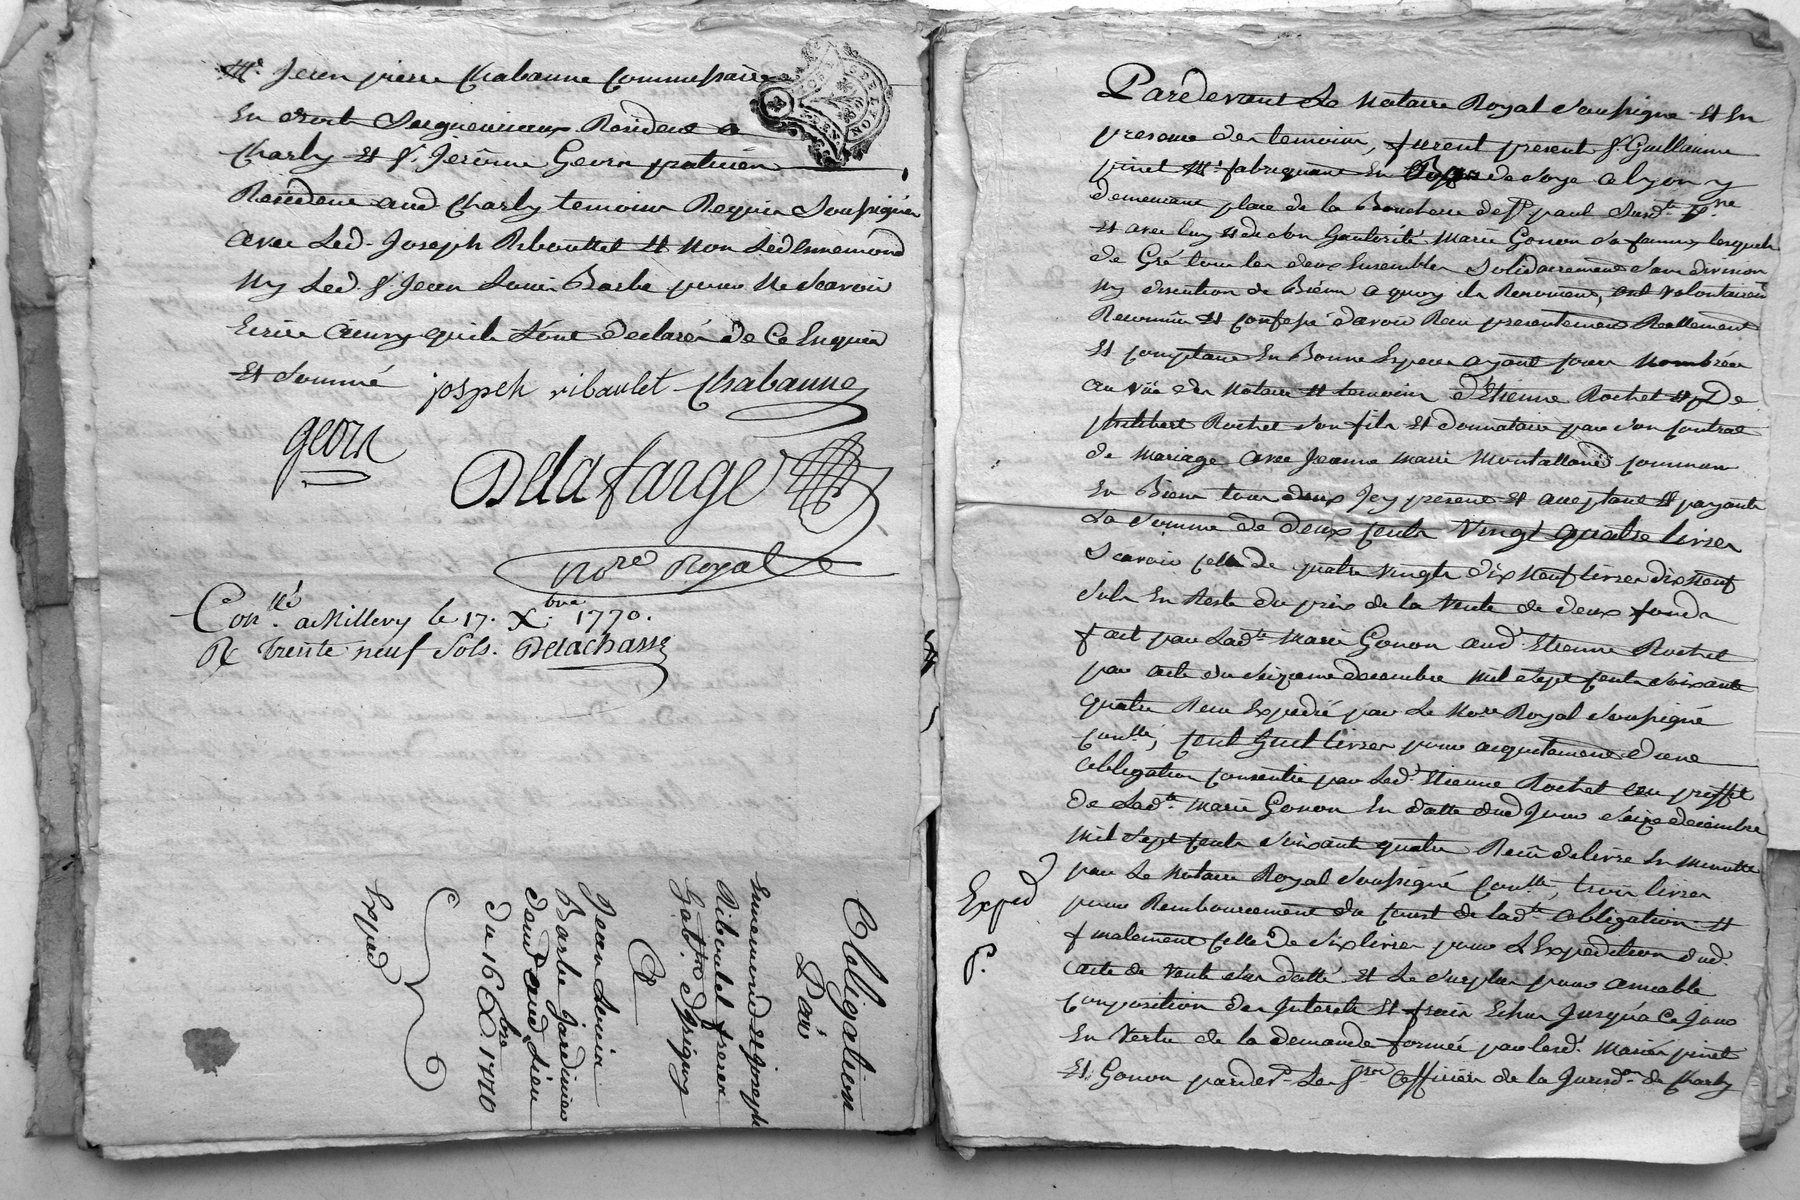 Me. Jean pierre Chabanne Commissaire
En droit Seigneuriaux Resident a
Charly Et Sr. Jerôme Georn praticien
Resident aud Charly temoins Requis Soussignés
avec Led. Joseph Riboullet Et non Led Ennemond
Ny Led. Sr. Jean Louis Barbe pour Ne Scavoir
Ecrire Ainsy quils L'ont declarés de Ce Enquis
Et Sommé
jospeh ribaulet Chabanne
georn
Delafarge
Nore Royal
Conllé. a Millery le 17. Xbre. 1770.
R trente neuf Sols. Delachasse
Obligation
Par
Ennemond et Joseph
Riboulet freres
d'Irigny
A
Jean Louis
Barbe Jardinier
aud Lieu
Du 16 Xbre 1770
Expéd
Pardevant Le Notaire Royal Soussigné Et En
presence des temoins, furent present Sr. Guillaume
pinet Me. fabriquant En de Soye a Lyon y
demeurant place de la Boucherie de St paul
Et avec luy Et de Son hautorité Marie Gonon Sa femme lesquels
de Gré tous les deux Ensembles Solidairement Sans division
Ny discution de Biens a quoy ils Renoncent, ont volontairemt
Reconnu Et Confessé d'avoir Reçu presentement Reellement
Et Comptant En Bonne Espece ayant Cours Nombrée
au vüe des Notaire Et temoins d'Etienne Rochet Et de
philibert Rochet Son fils Et donnataire par Son Contrat
de Mariage avec Jeanne Marie Montalland Commun
En Biens tous deux Icy present Et acceptant Et payants
La Somme de deux Cents Vingt quatre livres
Scavoir Celle de quatre vingts dix Neuf livres dix Neuf
Sols En Reste du prix de la Vente de deux fonds
fait par Ladte Marie Gonon aud. Etienne Rochet
par acte du Seizieme decembre Mil Sept Cents Soixante
quatre Recu Expedié par Le Nore Royal Soussigné
Conllé, Cent huit livres pour acquitement d'une
obligation Consentie par Led. Etienne Rochet au proffit
de Ladte. Marie Gonon En datte dud Jour Seize decembre
Mil Sept Cents Soixante quatre Recu delivré En Minutte
par Le Notaire Royal Soussigné Conllé, trois livres
pour Remboursement du Coust de ladte obligation Et
finalement Celle de Six livres pour L'Expedition dud.
acte de Vente Sus datté Et Le Surplus pour amiable
Composition des Interets Et frais Echus Jusqu'a Ce Jour
En Vertu de la demande formée par lesd. Mariés pinet
Et Gonon pardevt. Les Srs officiers de la Jurisdon. de Charly
Exped